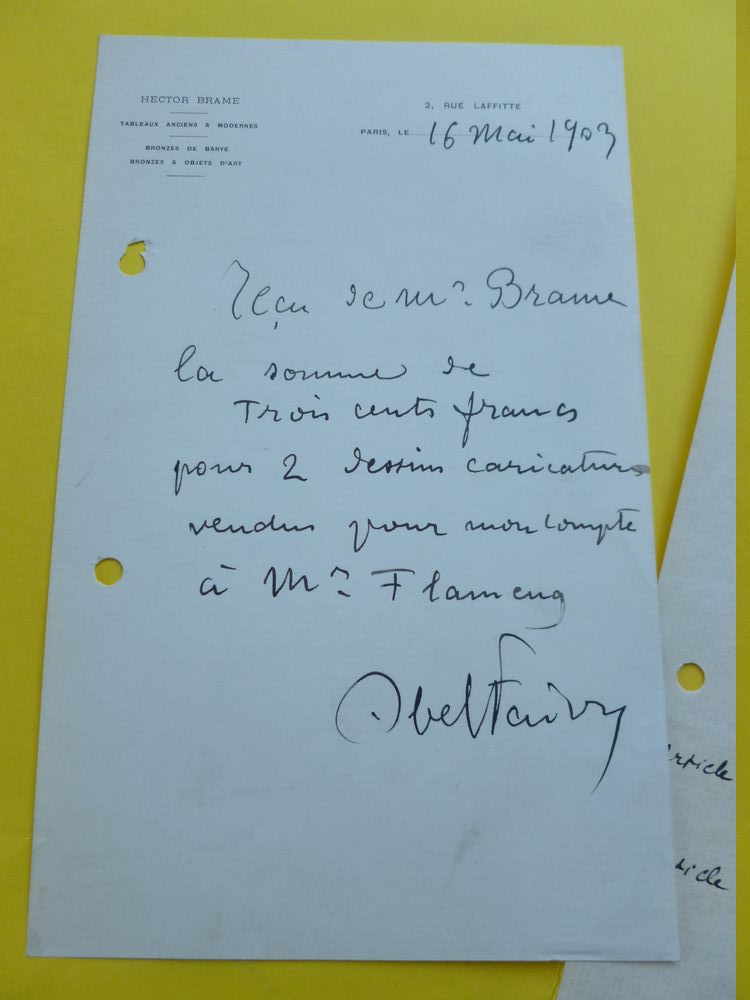 HECTOR BRAME
TABLEAUX ANCIENS & MODERNES
BRONZES DE BARYE
BRONZES & OBJETS D'ART
2, RUE LAFFITTE
PARIS, LE 16 Mai 1903
Reçu de Mr Brame
la somme de
Trois cents francs
pour 2 dessins caricatures
vendus pour mon compte
à Mr Flameng
Abel Faivre
article